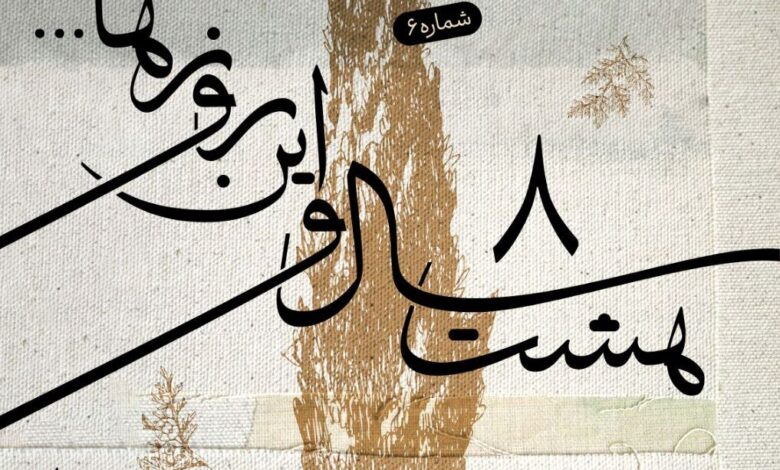 شماره ۶
هشت ۸
سال و
این روزها...